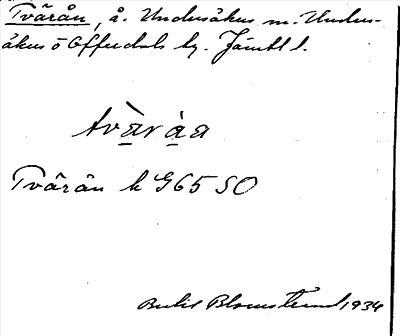 Tvärån, å. Undersåkers sn. Under-
såkers o Offerdals tg. Jämtl l.
tvàràa
Tvärån k G65 SO
Bertil Blomstrand 1934